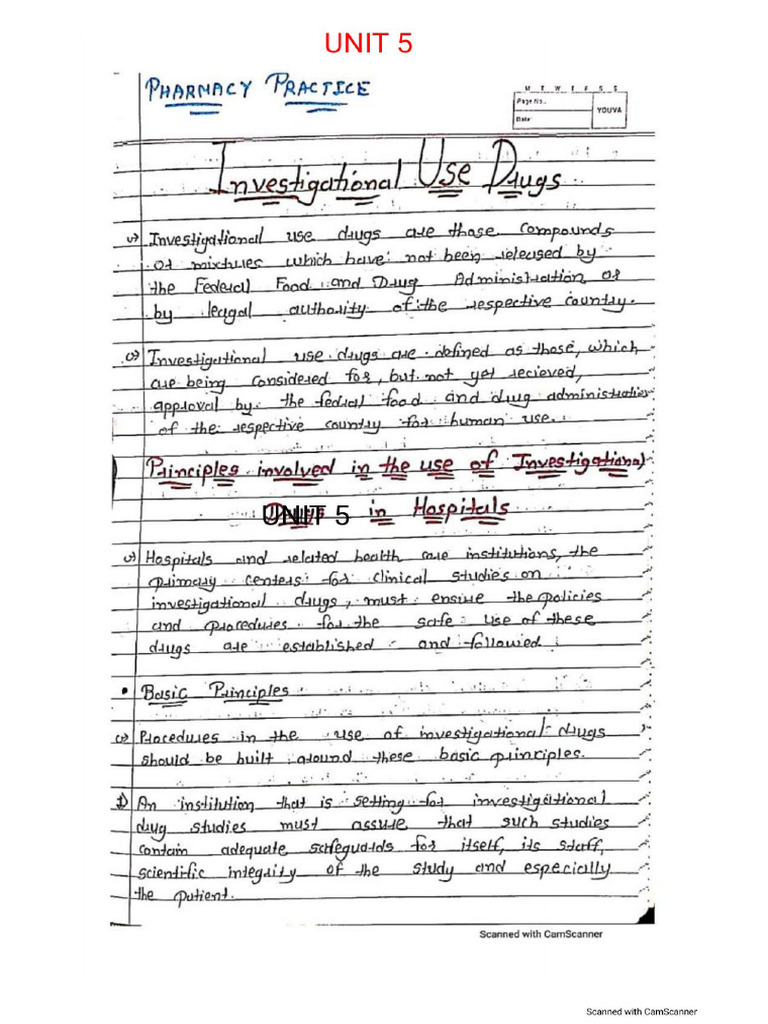 UNIT 5
PHARMACY PRACTICE
M T W T F S S
Page No.:
Date:
YOUVA
Investigational Use Drugs
Investigational use drugs are those compounds
or mixtures which have not been released by
the Federal Food and Drug Administration or
by leagal authority of the respective country.
Investigational use drugs are defined as those, which
are being considered for, but not yet recieved,
approval by the federal food and drug administration
of the respective country for human use.
Principles involved in the use of Investigational
UNIT 5 in Hospitals
Hospitals and related health care institutions, the
primary centers for clinical studies on
investigational drugs, must ensure the policies
and procedures for the safe use of these
drugs are established and followed.
• Basic Principles
Procedures in the use of investigational drugs
should be built around these basic principles.
1) An institution that is setting for investigational
drug studies must assure that such studies
contain adequate safeguards for itself, its staff,
scientific integrity of the study and especially
the patient.
Scanned with CamScanner
Scanned with CamScanner